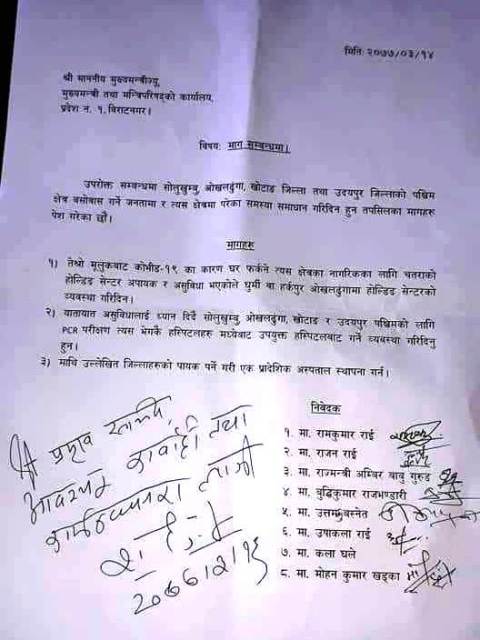 मिति: २०७७/०३/१४
श्री माननीय मुख्यमन्त्रीज्यू,
मुख्यमन्त्री तथा मन्त्रिपरिषद्को कार्यालय,
प्रदेश न. १, विराटनगर।
विषय: माग सम्बन्धमा।
उपरोक्त सम्बन्धमा सोलुखुम्बु, ओखलढुंगा, खोटाङ जिल्ला तथा उदयपुर जिल्लाको पश्चिम
क्षेत्र बसोबास गर्ने जनतामा र त्यस क्षेत्रमा परेका समस्या समाधान गरिदिन हुन तपसिलका मागहरु
पेश गरेका छौं।
मागहरु
१) तेश्रो मूलुकबाट कोभीड-१९ का कारण घर फर्कने त्यस क्षेत्रका नागरिकका लागि चतराको
होल्डिङ सेन्टर अपायक र असुविधा भएकोले घुर्मी वा हर्कपुर ओखलढुंगामा होल्डिङ सेन्टरको
व्यवस्था गरिदिन।
२) यातायात असुविधालाई ध्यान दिदै सोलुखुम्बु, ओखलढुंगा, खोटाङ र उदयपुर पश्चिमको लागि
PCR परीक्षण त्यस भेगकै हस्पिटलहरु मध्येबाट उपयुक्त हस्पिटलबाट गर्ने व्यवस्था गरिदिनु
हुन।
३) माथि उल्लेखित जिल्लाहरुको पायक पर्ने गरी एक प्रादेशिक अस्पताल स्थापना गर्न।
निवेदक
१. मा. रामकुमार राई
२. मा. राजन राई
३. मा. राज्मन्त्री अम्बिर बाबु गुरुङ
४. मा. बुद्धिकुमार राजभण्डारी
५. मा. उत्तम बस्नेत
६. मा. उषाकला राई
७. मा. कला घले
८. मा. मोहन कुमार खड्का
श्री प्रमुख
आवश्यक कार्वाही तथा